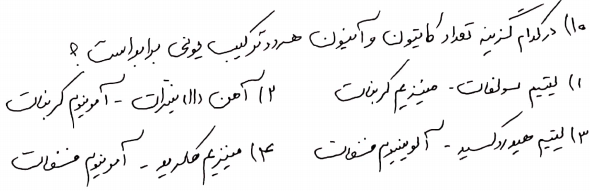 ۱۰) در کدام گزینه تعداد کاتیون و آنیون هر دو ترکیب یونی برابر است ؟
۱) لیتیم سولفات - منیزیم کربنات ۲) آهن (III) نیترات - آمونیوم کربنات
۳) لیتیم هیدروکسید - آلومینیوم فسفات ۴) منیزیم کلرید - آمونیوم فسفات